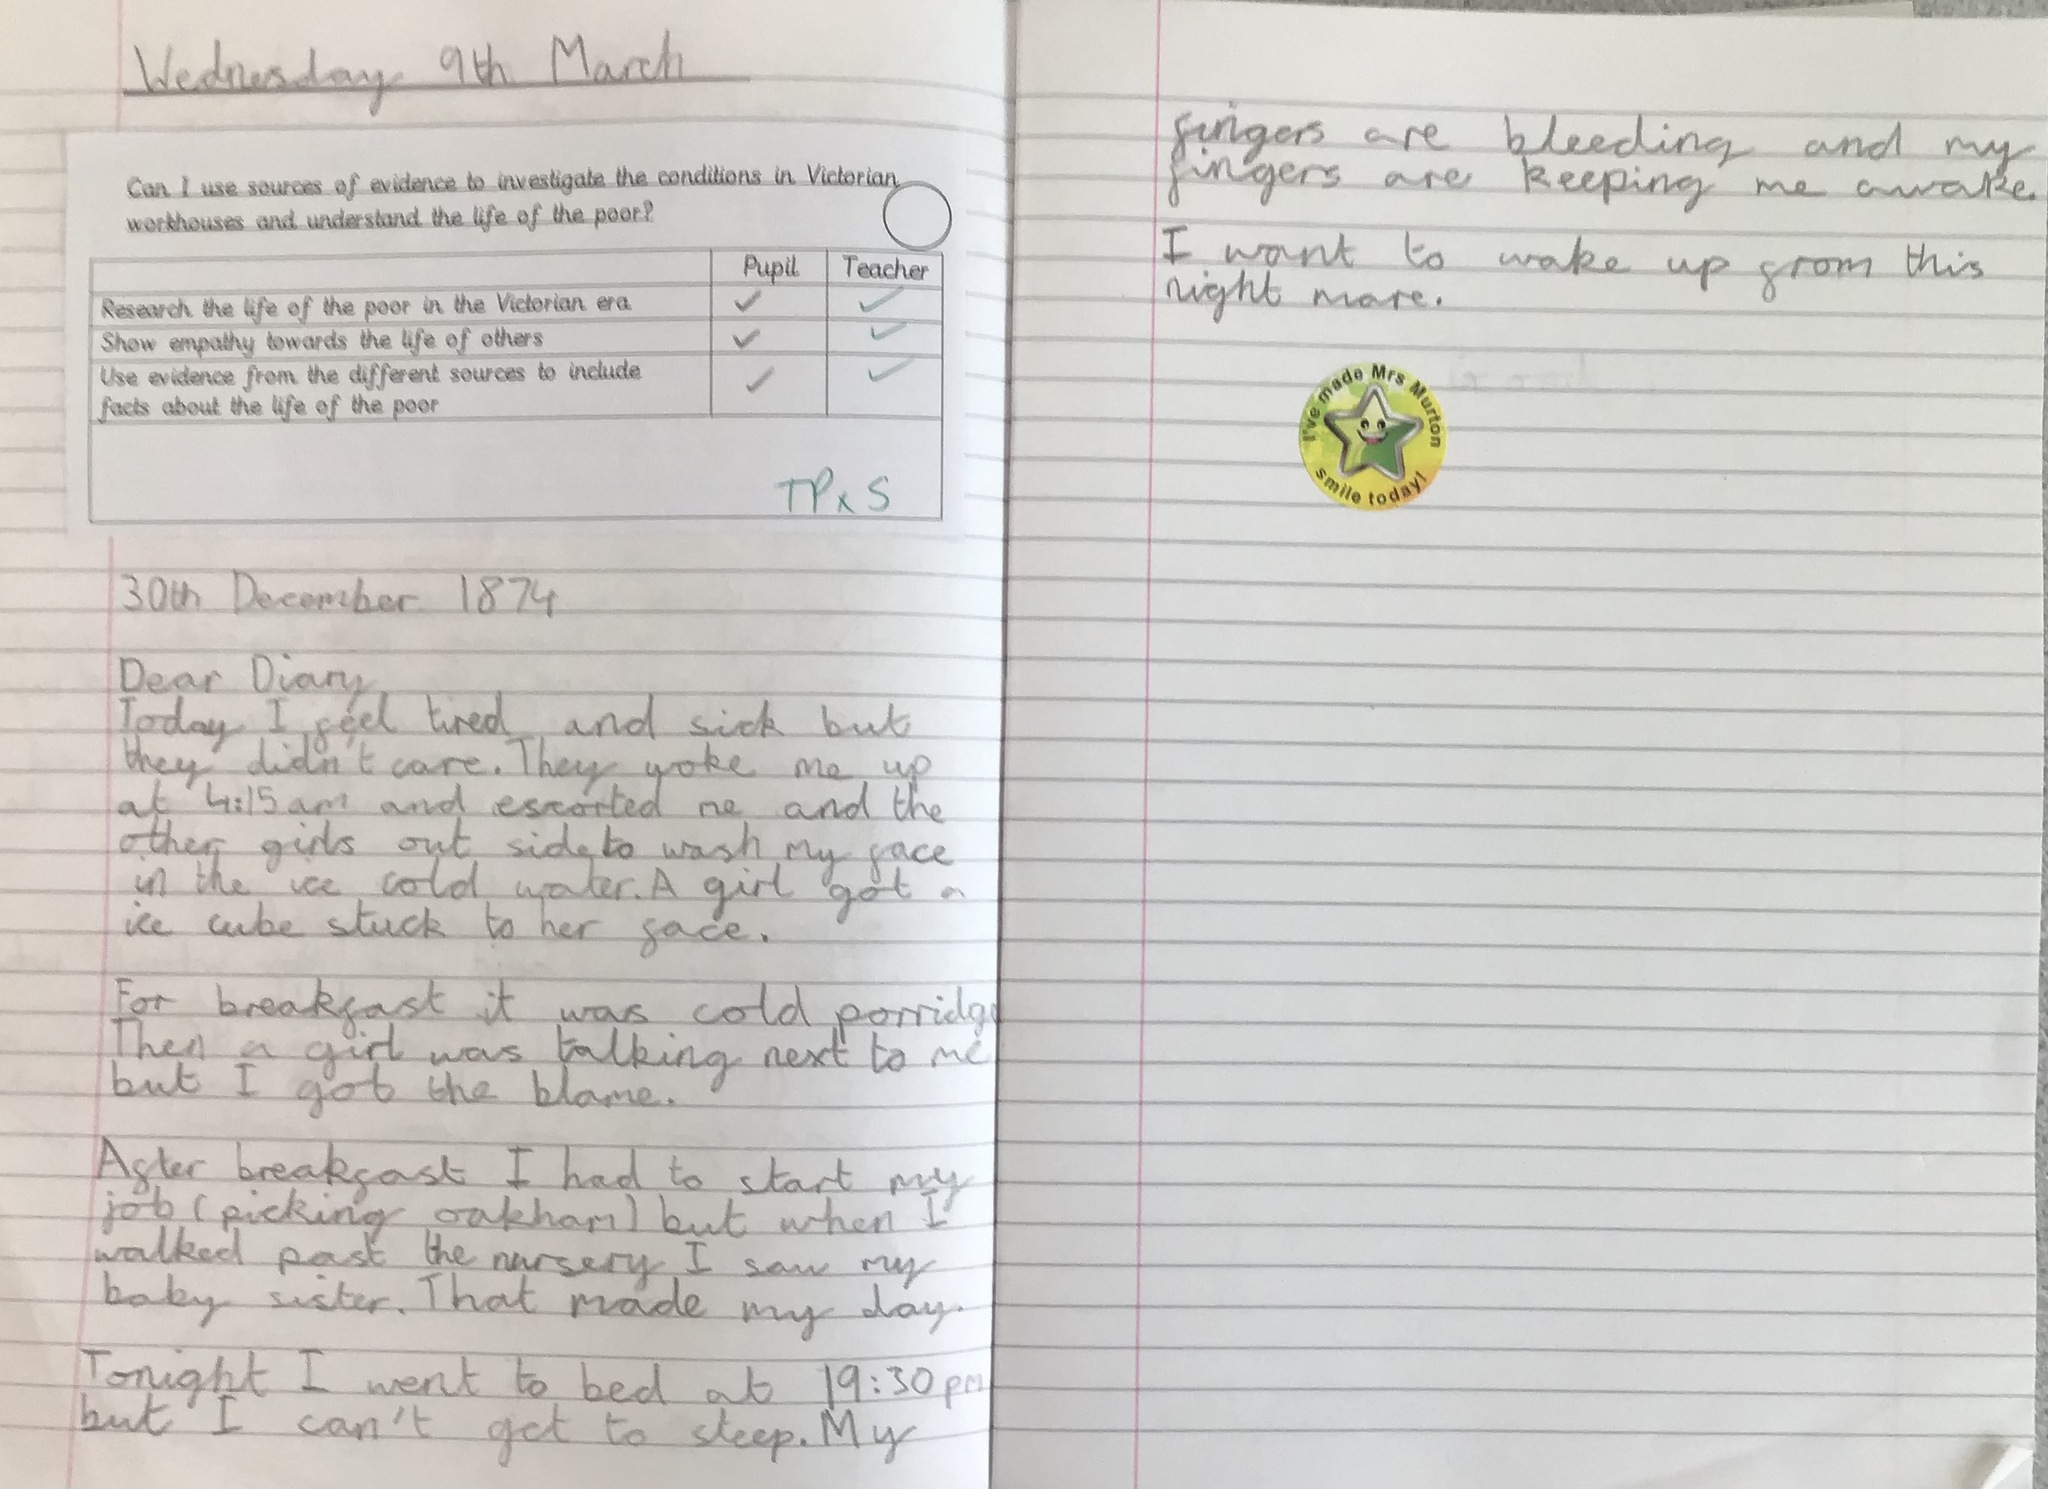 Wednesday 9th March
Can I use sources of evidence to investigate the conditions in Victorian
workhouses and understand the life of the poor?
Pupil Teacher
Research the life of the poor in the Victorian era
Show empathy towards the life of others
Use evidence from the different sources to include
facts about the life of the poor
TPx S
30th December 1874
Dear Diary
Today I feel tired and sick but
they didn't care. They woke me up
at 4:15am and escorted me and the
other girls out side to wash my face
in the ice cold water. A girl got a
ice cube stuck to her face.
For breakfast it was cold porridge
Then a girl was talking next to me
but I got the blame.
After breakfast I had to start my
job (picking oakham) but when I
walked past the nursery I saw my
baby sister. That made my day.
Tonight I went to bed at 19:30pm
but I can't get to sleep. My
fingers are bleeding and my
fingers are keeping me awake.
I want to wake up from this
night mare.
I've made Mrs Murton
smile today!